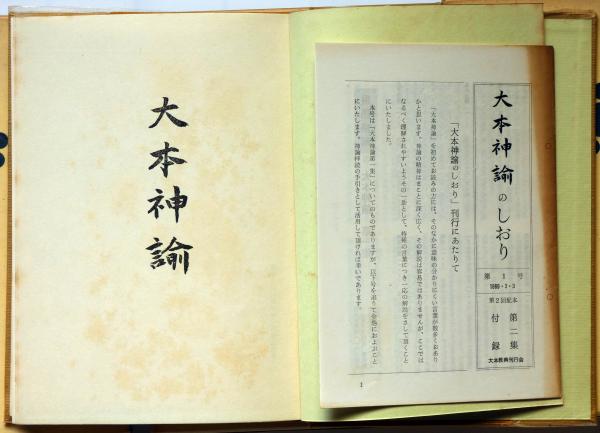 大本神諭
大本神諭のしおり
第1号
第2回配本
第二集
付録
大本教典刊行会
「大本神諭のしおり」刊行にあたりて
「大本神諭」を初めてお読みの方には、そのなかに意味の分かりにくい言葉が数多くおあり
かと思います。神諭の精神はまことに深く広く、その解説は容易ではありませんが、ここでは
なるべく理解されやすいようその一助として、特殊の言葉につき一応の解説をさして頂くこと
にいたしました。
本号は「大本神諭第一集」についてのものでありますが、以下号を追うて全巻におよぶこと
にいたします。神諭拝読の手引きとして活用して頂ければ幸いであります。
1